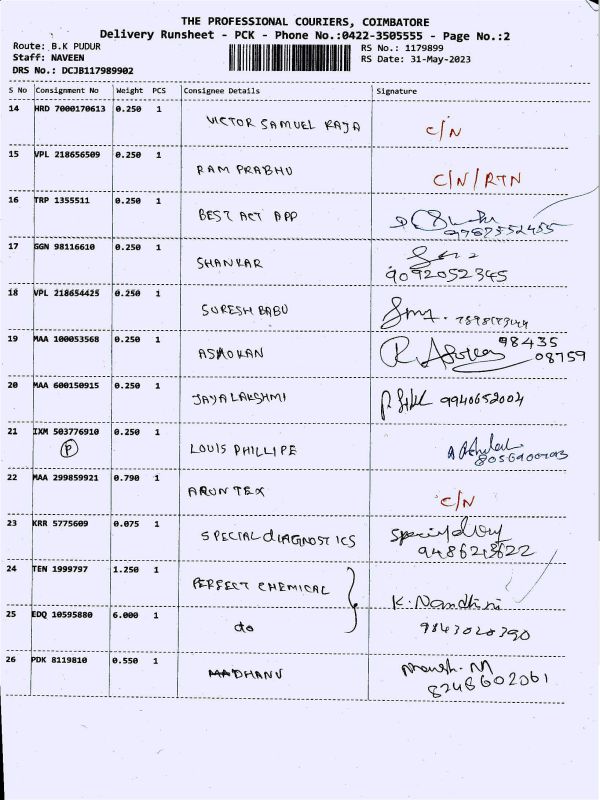 THE PROFESSIONAL COURIERS, COIMBATORE
Delivery Runsheet - PCK - Phone No.:0422-3505555 - Page No.:2
Route: B.K PUDUR RS No.: 1179899
Staff: NAVEEN RS Date: 31-May-2023
DRS No.: DCJB117989902
S No Consignment No Weight PCS Consignee Details Signature
14 HRD 7000170613 0.250 1 VICTOR SAMUEL RAJA C/N
15 VPL 218656509 0.250 1 RAM PRABHU C/N/RTN
16 TRP 1355511 0.250 1 BEST ACT APP
17 GGN 98116610 0.250 1 SHANKAR
9092052345
18 VPL 218654425 0.250 1 SURESH BABU
19 MAA 100053568 0.250 1 ASHOKAN 98435
08759
20 MAA 600150915 0.250 1 JAYALAKSHMI 9940652004
21 IXM 503776910 0.250 1 LOUIS PHILLIPE
P
22 MAA 299859921 0.790 1 ARUN TEX C/N
23 KRR 5775609 0.075 1 SPECIAL DIAGNOSTICS
24 TEN 1999797 1.250 1 PERFECT CHEMICAL K. Nandhini
25 EDQ 10595880 6.000 1 do 9843020390
26 PDK 8119810 0.550 1 MADHANU
8248602061